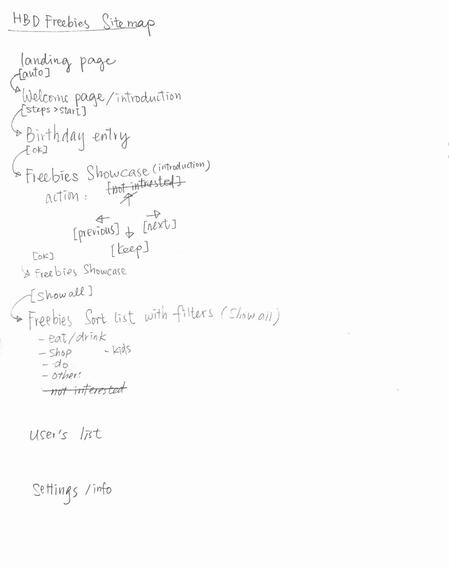 HBD Freebies Sitemap
landing page
[auto]
Welcome page/introduction
[steps > start]
Birthday entry
[ok]
Freebies Showcase (introduction)
action: [not intrested]
[previous] [next]
[keep]
[ok]
Freebies Showcase
[Show all]
Freebies Sort list with filters (Show all)
- eat/drink
- shop - kids
- do
- others
- not interested
User's list
Settings /info